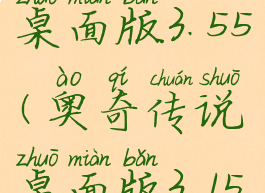 zhuō miàn bǎn
桌面版3.55
ào qí chuán shuō
(奥奇传说
zhuō miàn bǎn
桌面版3.15